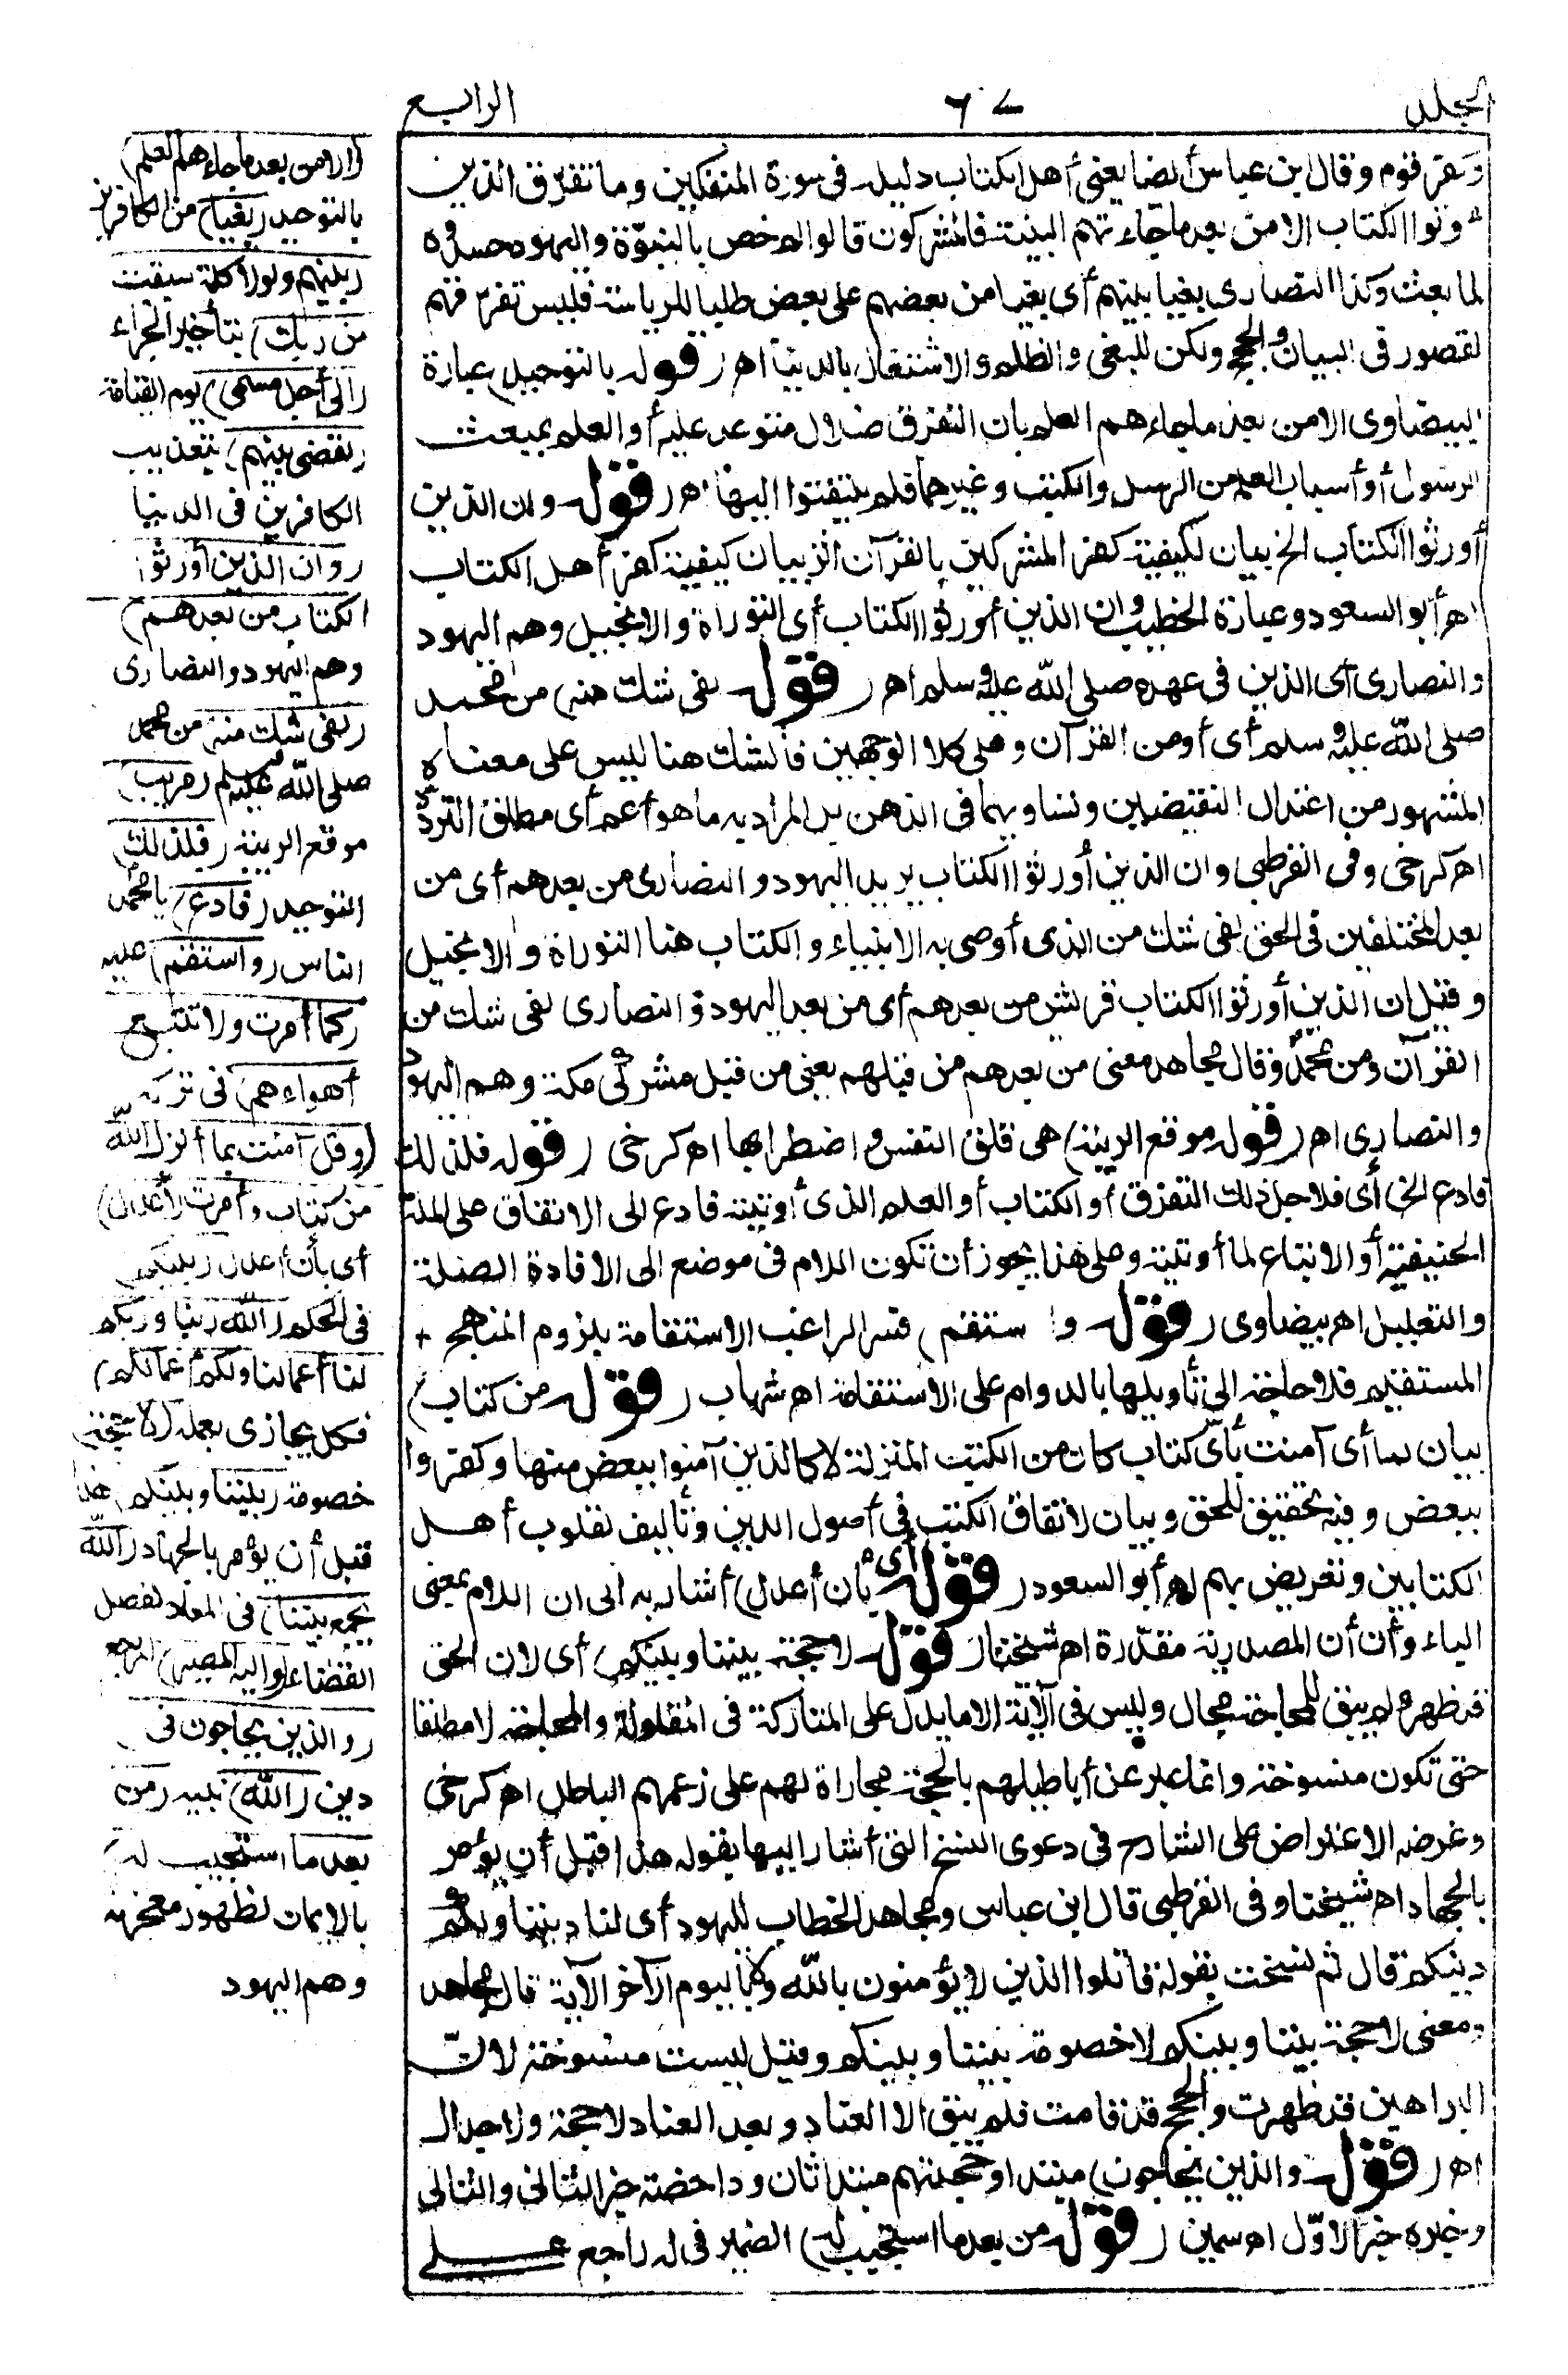 الجلد
٦٧
الرابع
وكفر قوم وقال ابن عباس أيضا يعنى أهل الكتاب دليله فى سورة المنفكين وما تفرق الذين
أوتوا الكتاب الا من بعد ما جاءتهم البينة فالمشركون قالوا لم خص بالنبوّة واليهود حسدوه
لما بعث وكذا النصارى بغيا بينهم أى بغيا من بعضهم على بعض طلبا للرياسة فليس تفرّقهم
لقصور فى البيان والحجج ولكن للبغى والظلم والاشتغال بالدنيا اهـ (قوله بالتوحيد) عبارة
البيضاوى الا من بعد ما جاءهم العلم بان التفرق ضلال متوعد عليه أو العلم بمبعث
الرسول أو أسباب العلم من الرسل والكتب وغيرهما فلم يلتفتوا اليها اهـ (قوله وان الذين
أورثوا الكتاب الخ بيان لكيفية كفر المشركين بالقرآن اثر بيان كيفية كفر أهل الكتاب
اهـ أبو السعود وعبارة الخطيب وان الذين أورثوا الكتاب أى التوراة والانجيل وهم اليهود
والنصارى أى الذين فى عهده صلى الله عليه وسلم اهـ (قوله لفى شك منه) من محمد
صلى الله عليه وسلم أى أو من القرآن وعلى كلا الوجهين فالشك هنا ليس على معناه
المشهور من اعتدال النقيضين وتساويهما فى الذهن بل المراد به ما هو أعم أى مطلق التردّد
اهـ كرخى وفى القرطبى وان الذين أورثوا الكتاب يريد اليهود والنصارى من بعدهم أى من
بعد المختلفين فى الحق لفى شك من الذى أوصى به الانبياء والكتاب هنا التوراة والانجيل
وقيل ان الذين أورثوا الكتاب قريش من بعدهم أى من بعد اليهود والنصارى لفى شك من
القرآن ومن محمد وقال مجاهد معنى من بعدهم من قبلهم يعنى من قبل مشركى مكة وهم اليهود
والنصارى اهـ (قوله موقع الريبة) هى قلق النفس واضطرابها اهـ كرخى (قوله فلذلك
فادع الخ) أى فلاجل ذلك التفرق أو الكتاب أو العلم الذى أوتيته فادع الى الاتفاق على الملة
الحنيفية أو الاتباع لما أوتيته وعلى هذا يجوز أن تكون اللام فى موضع الى الافادة الصلة
والتعليل اهـ بيضاوى (قوله واستقم) فسر الراغب الاستقامة بلزوم المنهج
المستقيم فلا حاجة الى تأويلها بالدوام على الاستقامة اهـ شهاب (قوله من كتاب)
بيان لما أى آمنت بأىّ كتاب كان من الكتب المنزلة لا كالذين آمنوا ببعض منها وكفروا
ببعض وفيه تحقيق للحق وبيان لاتفاق الكتب فى أصول الدين وتأليف لقلوب أهل
الكتابين وتعريض بهم اهـ أبو السعود (قوله أى بأن أعدل) أشار به الى ان اللام بمعنى
الباء وأن أن المصدرية مقدّرة اهـ شيخنا (قوله لا حجة بيننا وبينكم) أى لان الحق
قد ظهر ولم يبق للمحاجة مجال وليس فى الآية الا ما يدل على المتاركة فى المقاولة والمحاجة لا مطلقا
حتى تكون منسوخة وانما عبر عن أباطيلهم بالحجة مجاراة لهم على زعمهم الباطل اهـ كرخى
وغرضه الاعتراض على الشارح فى دعوى النسخ التى أشار اليها بقوله هذا قبل أن يؤمر
بالجهاد اهـ شيخنا وفى القرطبى قال ابن عباس ومجاهد الخطاب لليهود أى لنا ديننا ولكم
دينكم قال ثم نسخت بقوله قاتلوا الذين لا يؤمنون بالله ولا باليوم الآخر الآية قال مجاهد
ومعنى لا حجة بيننا وبينكم لا خصومة بيننا وبينكم وقيل ليست منسوخة لانّ
البراهين قد ظهرت والحجج قد قامت فلم يبق الا العناد وبعد العناد لا حجة ولا جدال
اهـ (قوله والذين يحاجون) مبتدا وحجتهم مبتدا ثان وداحضة خبر الثانى والثانى
وخبره خبر الاوّل اهـ سمين (قوله من بعد ما استجيب له) الضمير فى له راجع على
(الا من بعد ما جاءهم العلم)
بالتوحيد (بغيا) من الكافرين
(بينهم ولولا كلمة سبقت
من ربك) بتأخير الجزاء
(الى أجل مسمى) يوم القيامة
(لقضى بينهم) بتعذيب
الكافرين فى الدنيا
(وان الذين أورثوا
الكتاب من بعدهم)
وهم اليهود والنصارى
(لفى شك منه) من محمد
صلى الله عليه وسلم (مريب)
موقع الريبة (فلذلك)
التوحيد (فادع) يا محمد
الناس (واستقم) عليه
(كما أمرت ولا تتبع
أهواءهم) فى تركه
(وقل آمنت بما أنزل الله
من كتاب وأمرت لأعدل)
أى بأن أعدل (بينكم)
فى الحكم (الله ربنا وربكم
لنا أعمالنا ولكم أعمالكم)
فكل يجازى بعمله (لا حجة)
خصومة (بيننا وبينكم) هذا
قبل أن يؤمر بالجهاد (الله
يجمع بيننا) فى المعاد لفصل
القضاء (واليه المصير) المرجع
(والذين يحاجون فى)
دين (الله) نبيه (من
بعد ما استجيب له)
بالايمان لظهور معجزته
وهم اليهود